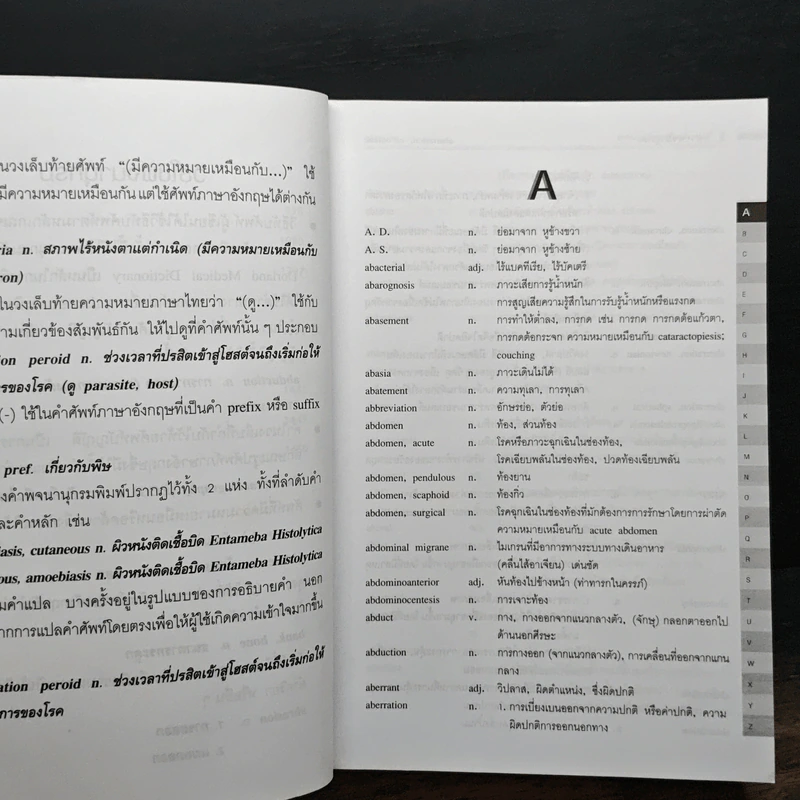 นวงเล็บท้ายศัพท์ “(มีความหมายเหมือนกับ...)” ใช้
มีความหมายเหมือนกัน แต่ใช้ศัพท์ภาษาอังกฤษได้ต่างกัน
ria n. สภาพไร้หนังตาแต่กำเนิด (มีความหมายเหมือนกับ
ron)
ในวงเล็บท้ายความหมายภาษาไทยว่า “(ดู...)” ใช้กับ
ามเกี่ยวข้องสัมพันธ์กัน ให้ไปดูที่คำศัพท์นั้น ๆ ประกอบ
ion peroid n. ช่วงเวลาที่ปรสิตเข้าสู่โฮสต์จนถึงเริ่มก่อให้
ารของโรค (ดู parasite, host)
(-) ใช้ในคำศัพท์ภาษาอังกฤษที่เป็นคำ prefix หรือ suffix
pref. เกี่ยวกับพิษ
งคำพจนานุกรมพิมพ์ปรากฏไว้ทั้ง 2 แห่ง ทั้งที่ลำดับคำ
ละคำหลัก เช่น
iasis, cutaneous n. ผิวหนังติดเชื้อบิด Entameba Histolytica
ous, amoebiasis n. ผิวหนังติดเชื้อบิด Entameba Histolytica
มคำแปล บางครั้งอยู่ในรูปแบบของการอธิบายคำ นอก
ากการแปลคำศัพท์โดยตรงเพื่อให้ผู้ใช้เกิดความเข้าใจมากขึ้น
ation peroid n. ช่วงเวลาที่ปรสิตเข้าสู่โฮสต์จนถึงเริ่มก่อให้
การของโรค
A
A. D. n. ย่อมาจาก หูข้างขวา
A. S. n. ย่อมาจาก หูข้างซ้าย
abacterial adj. ไร้แบคทีเรีย, ไร้บัคเตรี
abarognosis n. ภาวะเสียการรู้น้ำหนัก
การสูญเสียความรู้สึกในการรับรู้น้ำหนักหรือแรงกด
abasement n. การทำให้ต่ำลง, การกด เช่น การกด การกดต้อแก้วตา,
การกดต้อกระจก ความหมายเหมือนกับ cataractopiesis;
couching
abasia n. ภาวะเดินไม่ได้
abatement n. ความทุเลา, การทุเลา
abbreviation n. อักษรย่อ, ตัวย่อ
abdomen n. ท้อง, ส่วนท้อง
abdomen, acute n. โรคหรือภาวะฉุกเฉินในช่องท้อง,
โรคเฉียบพลันในช่องท้อง, ปวดท้องเฉียบพลัน
abdomen, pendulous n. ท้องยาน
abdomen, scaphoid n. ท้องกิ่ว
abdomen, surgical n. โรคฉุกเฉินในช่องท้องที่มักต้องการการรักษาโดยการผ่าตัด
ความหมายเหมือนกับ acute abdomen
abdominal migrane n. ไมเกรนที่มีอาการทางระบบทางเดินอาหาร
(คลื่นไส้อาเจียน) เด่นชัด
abdominoanterior adj. หันท้องไปข้างหน้า (ท่าทารกในครรภ์)
abdominocentesis n. การเจาะท้อง
abduct v. กาง, กางออกจากแนวกลางตัว, (จักษุ) กลอกตาออกไป
ด้านนอกศีรษะ
abduction n. การกางออก (จากแนวกลางตัว), การเคลื่อนที่ออกจากแกน
กลาง
aberrant adj. วิปลาส, ผิดตำแหน่ง, ซึ่งผิดปกติ
aberration n. 1. การเบี่ยงเบนออกจากความปกติ หรือค่าปกติ, ความ
ผิดปกติการออกนอกทาง
A
B
C
D
E
F
G
H
I
J
K
L
M
N
O
P
Q
R
S
T
U
V
W
X
Y
Z